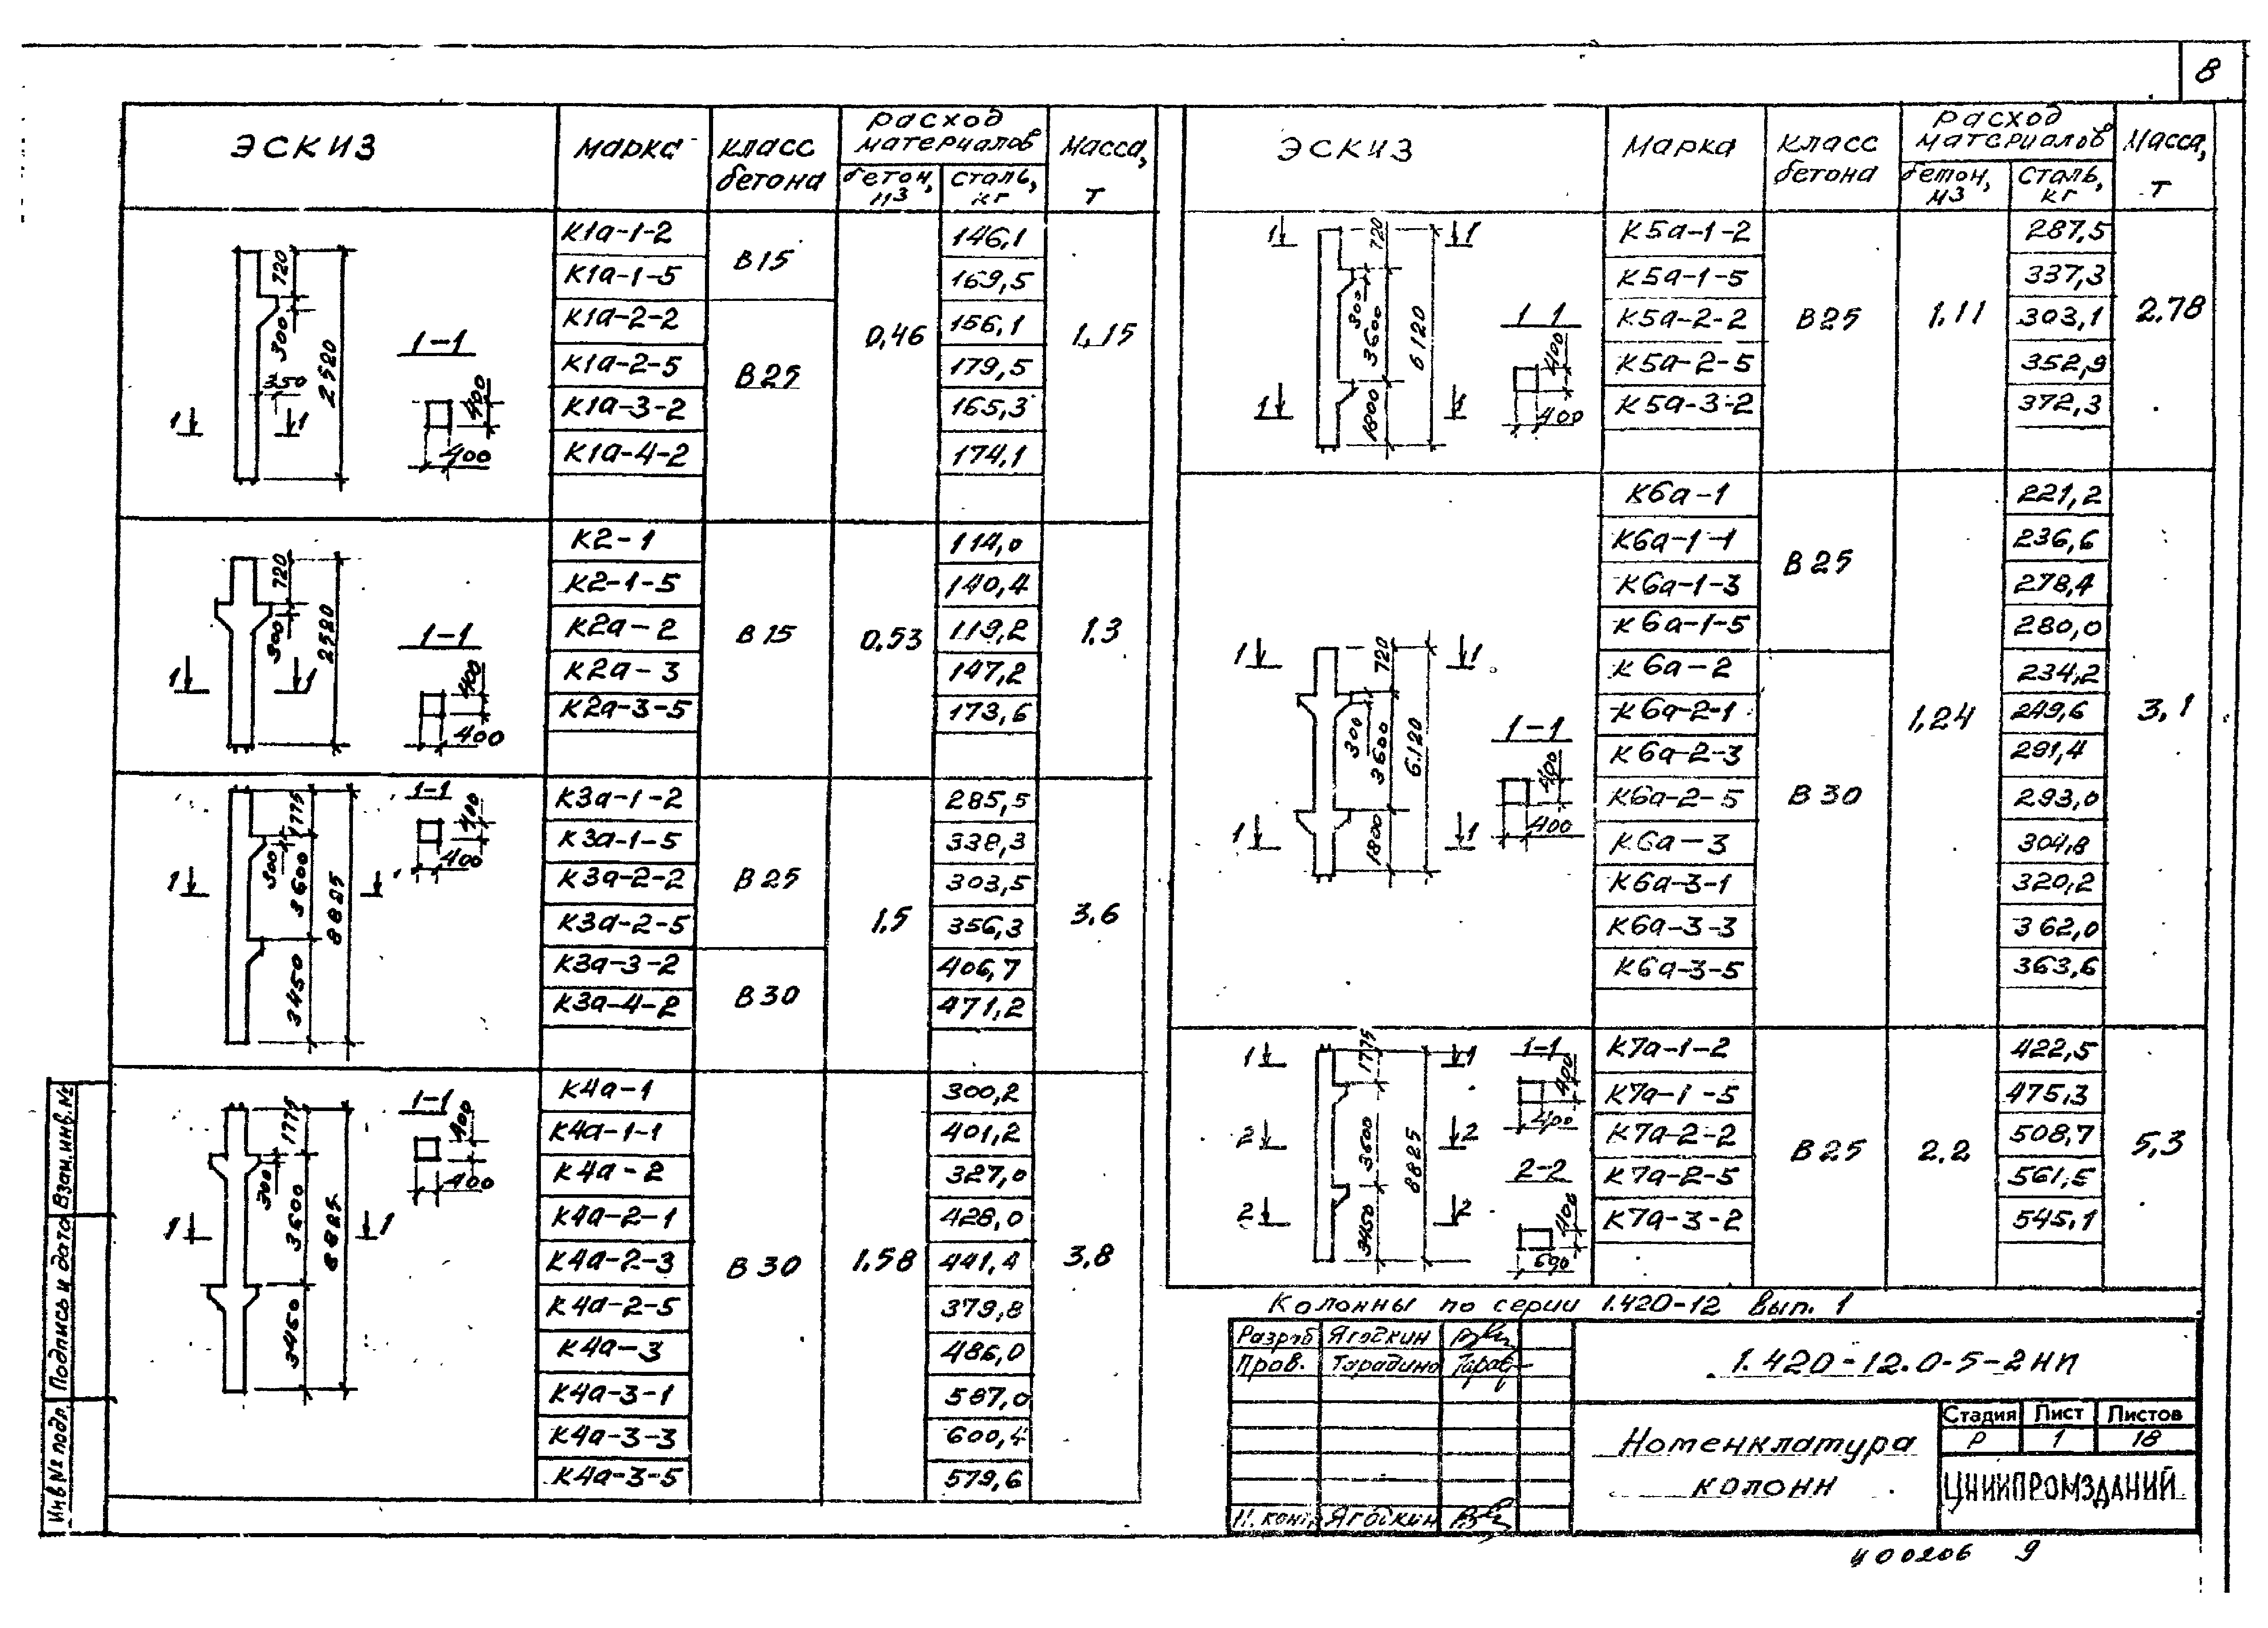 8
ЭСКИЗ
Марка
класс бетона
расход материалов
бетон, м3
сталь, кг
Масса, т
720
300
2520
350
1
1
1-1
400
400
К1а-1-2
146,1
К1а-1-5
169,5
К1а-2-2
156,1
К1а-2-5
179,5
К1а-3-2
165,3
К1а-4-2
174,1
В15
В25
0,46
1,15
720
300
2520
1
1
1-1
400
400
К2-1
114,0
К2-1-5
140,4
К2а-2
119,2
К2а-3
147,2
К2а-3-5
173,6
В15
0,53
1,3
1775
300
3600
3450
8825
1
1-1
400
400
К3а-1-2
285,5
К3а-1-5
338,3
К3а-2-2
303,5
К3а-2-5
356,3
К3а-3-2
406,7
К3а-4-2
471,2
В25
В30
1,5
3,6
1775
300
3600
3450
8825
1
1
1-1
400
400
К4а-1
300,2
К4а-1-1
401,2
К4а-2
327,0
К4а-2-1
428,0
К4а-2-3
441,4
К4а-2-5
379,8
К4а-3
486,0
К4а-3-1
587,0
К4а-3-3
600,4
К4а-3-5
579,6
В30
1,58
3,8
ЭСКИЗ
Марка
класс бетона
расход материалов
бетон, м3
сталь, кг
Масса, т
1
1
720
300
3600
1800
6120
1
1
1 1
400
400
К5а-1-2
287,5
К5а-1-5
337,3
К5а-2-2
303,1
К5а-2-5
352,9
К5а-3-2
372,3
В25
1,11
2,78
1
1
720
300
3600
1800
6120
1
1
1-1
400
400
К6а-1
221,2
К6а-1-1
236,6
К6а-1-3
278,4
К6а-1-5
280,0
К6а-2
234,2
К6а-2-1
249,6
К6а-2-3
291,4
К6а-2-5
293,0
К6а-3
304,8
К6а-3-1
320,2
К6а-3-3
362,0
К6а-3-5
363,6
В25
В30
1,24
3,1
1
1
2
2
2
2
1775
3600
3450
8825
1-1
400
400
2-2
400
600
К7а-1-2
422,5
К7а-1-5
475,3
К7а-2-2
508,7
К7а-2-5
561,5
К7а-3-2
545,1
В25
2,2
5,3
Колонны по серии 1.420-12 вып. 1
Разраб Ягодкин
Пров. Тарадина
Н. конт. Ягодкин
1.420-12.0-5-2НИ
Номенклатура
колонн
Стадия Лист Листов
Р 1 18
ЦНИИПРОМЗДАНИЙ
Взам.инв.№
Подпись и дата
Инв№ подл.
Ц00206 9